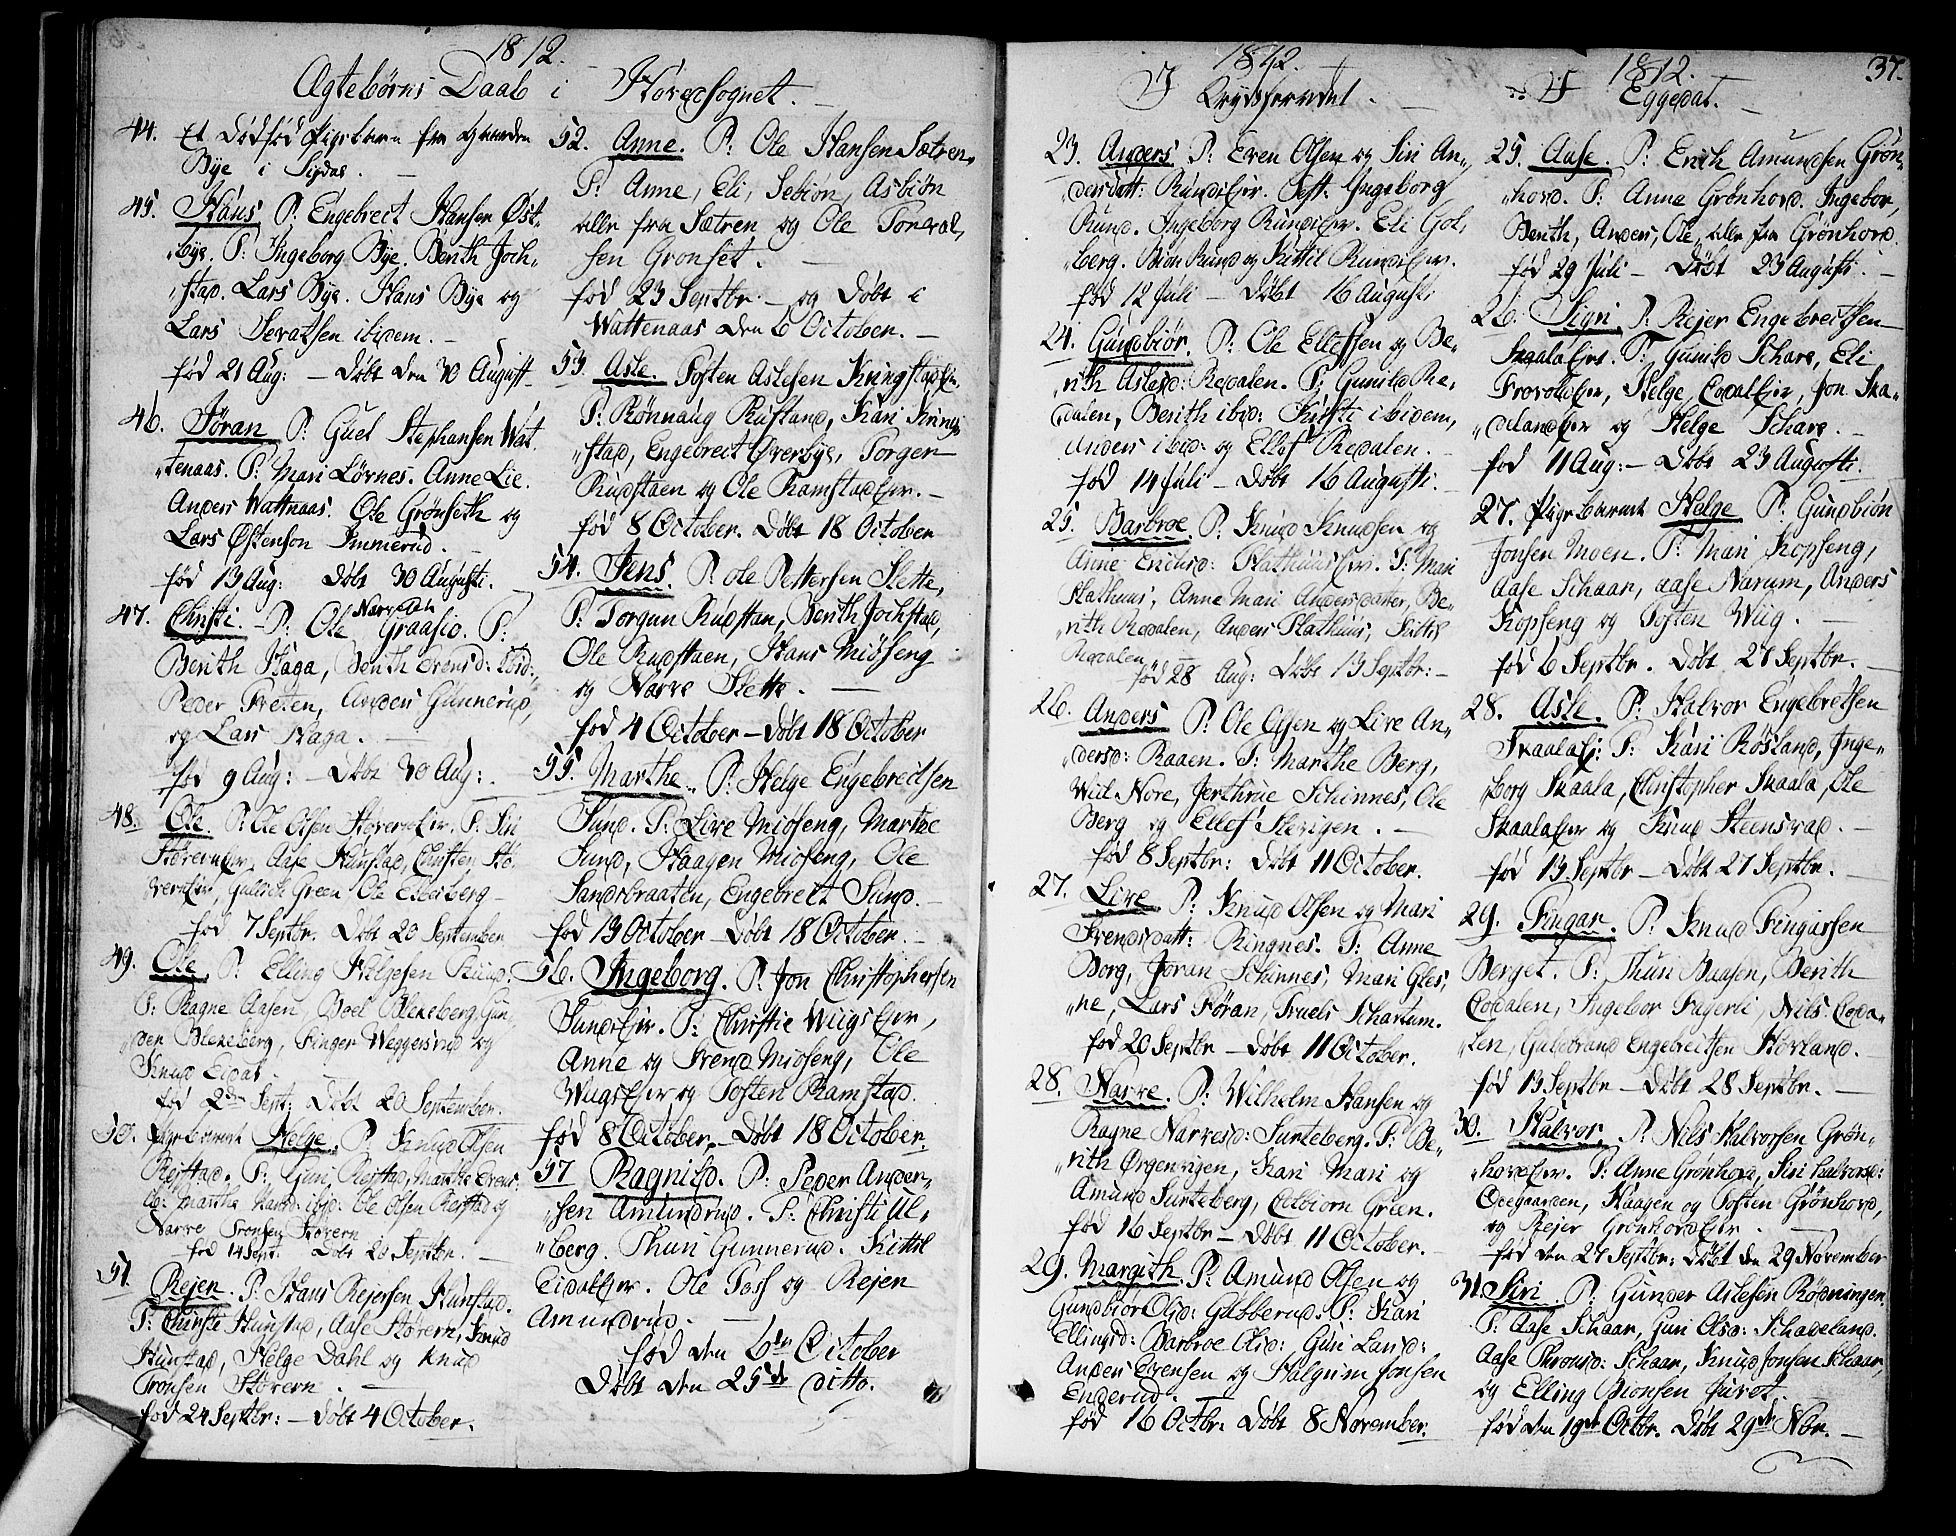 1812.
Ægtebørns Daab i Hovedsognet.
44. Et dødfød Pigebarn fra Gaarden
Bye i Sigdal.
45. Hans P. Engebrect Hansen Øst-
bye. F: Ingeborg Bye. Berith Joch-
stad. Lars Bye. Hans Bye og
Lars ibidem.
fød 21 Aug: - Døbt den 30 August
46. Jöran P: Guel Stephansen Wat-
tenaas. F: Mari Lörnes. Anne Lie.
Anders Wattnaas. Ole Grönseth og
Lars Østenson
fød 13 Aug: Døbt 30 Augusti.
47. Christi. P: Ole Narvesen Graasid. F:
Berith Haga, Berith Evensd: ibid:,
Peder Freten, Anders Gunnerud,
og Lars Haga.
fød 9 Aug: - Døbt 30 Aug:
48. Ole. P. Ole Olsen F: Siri
Aase Hunstad, Christen Stö-
Gulich Green Ole
fød 7 Septbr. Døbt 20 September
49. Ole. P. Elling Helgesen Ruud.
F: Ragne Aasen, Boel Blekeberg, Gun-
der Blekeberg, Finger Weggersrud og
Knud Eidal.
fød 2den Sept: Døbt 20 September.
50. Pigebarnet Helge. P. Knud Olsen
Reistad. F: Guri Reistad, Marthe Evens-
d: Marthe ibid: Ole Olsen Reistad og
Narve Tronsen Störern
fød 14 Sept. Døbt 20 Septbr.
51. Rejer. P: Hans Rejersen Hunstad.
F: Christi Hunstad, Aase Störern, Knud
Hunstad, Helge Dahl og Knud
Tronsen Störern.
fød 24 Septbr: - Døbt 4 October.
52. Anne. P: Ole Hansen Sætren,
F: Anne, Eli, Sebiör, Asbiör
alle fra Sætren og Ole Torval-
sen Gronset.
fød 23 Septbr. - og Døbt i
Wattenaas den 6 October.
53. Asle. Tosten Aslesen Kringstadeje.
F: Rönnaug Rustand, Kari Kring-
stad, Engebrect Överbye, Torger
Rudstaen og Ole Ramstadeje.
fød 8 October. Døbt 18 October
54. Jens. P: Ole Pettersen Slette,
F: Torgun Rudstan, Berith Jochstad,
Ole Rudstaen, Hans Miöseng
og Narve Slette.
fød 4 October - Døbt 18 October
55. Marthe. P: Helge Engebrectsen
Sund. F: Live Miöseng, Marthe
Sund, Haagen Miöseng, Ole
Sandsbraaten, Engebrect Sund.
fød 13 October - Døbt 18 October.
56. Ingeborg. P. Jon Christophersen
Sundseje. F: Christie Wiigseje,
Anne og Svend Miöseng, Ole
Wiigseje og Tosten Ramstad.
fød 8 October - Døbt 18 October.
57 Ragnild. P: Peder Ander-
sen Amundrud. F: Christi Ul-
berg. Thuri Gunnerud. Kittil
Eidaleje. Ole Toss og Rejer
Amundrud.
fød den 6te October
Døbt den 25de ditto.
1812.
I Krydsherredet.
23. Anders P: Even Olsen og Siri An-
dersdatt: Rundseje. Test. Ingeborg
Rund. Ingeborg Rundseje. Eli Gol-
berg. Biön Rund og Kittil Rundseje.
fød 12 Juli - Døbt 16 Augusti
24. Gundbiör. P: Ole Ellefsen og Be-
rith Aslesd: Redalen. F: Gunild Re-
dalen, Berith ibid: Kirsti ibidem,
Anders ibid: og Ellef Redalen.
fød 14 Juli - Døbt 16 Augusti.
25. Barbroe P. Knud Knudsen og
Anne Ericksd: Slathuuseje. F: Mari
Slathuus, Anne Mari Andersdatter, Be-
rith Redalen, Anders Slathuus, Kittil
Redalen
fød 28 Aug: Døbt 13 Septbr:
26. Anders P: Ole Olsen og Live An-
dersd: Raaen. F: Marthe Berg,
Nore, Jerthrue Schinnes, Ole
Berg og Ellef Slevigen.
fød 8 Septbr: Døbt 11 October.
27. Live P: Knud Olsen og Mari
Svendsdatt: Ringnes. F: Anne
Borg, Jöran Schinnes, Mari Gles-
ne, Lars Föran, Truels Schartum.
fød 20 Septbr - Døbt 11 October.
28. Narve. P: Wilhelm Hansen og
Ragne Narvesd: Surteberg. F: Be-
rith Ørgenvigen, Kari Mari og
Amund Surteberg, Green.
fød 16 Septbr - Døbt 11 October.
29. Margith. P: Amund Olsen og
Gundbiör Olsd: Gulberud. F: Kari
Ellingsd: Barbroe Olsd: Guri Larsd:
Anders Evensen og Halgrim Jonsen
Enderud.
fød 16 Octbr. Døbt 8 November.
1812.
37.
I Eggedal.
25. Aase. P: Erich Amundsen Grön-
hovd. F: Anne Grönhovd. Ingebor,
Berith, Anders, Ole, alle fra Grönhovd.
fød 29 Juli - Døbt 23 Augusti.
26. Sigri P: Rejer Engebreitsen
Skaalaeje. F: Gunild Schare, Eli
Helge, Jon Ska-
delandeje og Helge Schare.
fød 11 Aug: - Døbt 23 Augusti.
27. Pigebarnet Helge P. Gundbiön
Jonsen Moen. F: Mari Kopseng,
Aase Schaar, Aase Narum, Anders
Kopseng og Tosten Wiig.
fød 6 Septbr. Døbt 27 Septbr.
28. Asle. P: Halvor Engebretsen
Skaalaej: F: Kari Rösland, Inge-
borg Skaala, Christopher Skaala, Ole
Skaalaeje og Knud Steensrud.
fød 13 Septbr - Døbt 27 Septbr.
29. Fingar. P. Knud Fingarsen
Berget. F: Thuri Baasen, Berith
Eedalen, Ingebor Fagerli, Nils Eeda-
len, Gulbrand Engebreitsen Hovland.
fød 13 Septbr - Døbt 28 Septbr.
30. Halvor. P. Nils Halvorsen Grön-
hovdeje. F: Anne Grönhovd, Siri Halvorsd:
Oedegaarden, Haagen og Tosten Grönhovd,
og Rejer Grönhovdseje.
fød den 27 Septbr: Døbt den 29 November
31. Siri P. Gunder Aslesen Rödningen.
F: Aase Schaar, Guri Olsd: Schadeland.
Aase Thronsd: Schaar, Knud Jonsen Schaar,
og Elling Bionsen Juvet.
fød den 19de Octbr. Døbt 29de Nbr.